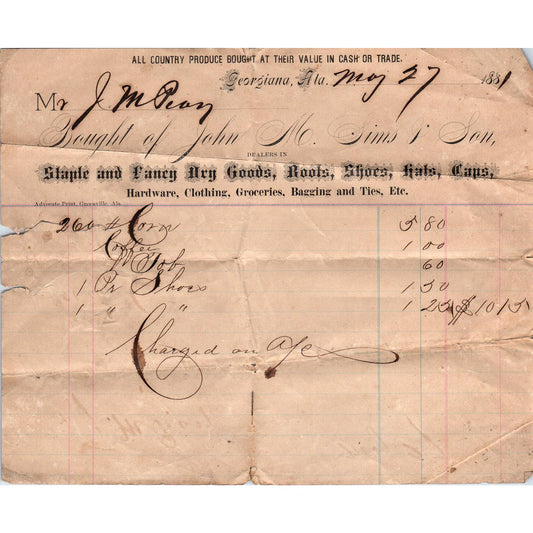 ALL COUNTRY PRODUCE BOUGHT AT THEIR VALUE IN CASH OR TRADE.
Georgiana, Ala. May 27 1881
Mr J. M Peavy
Bought of John M. Sims & Son,
DEALERS IN
Staple and Fancy Dry Goods, Boots, Shoes, Hats, Caps,
Hardware, Clothing, Groceries, Bagging and Ties, Etc.
Advocate Print, Greenville, Ala.
260 # Corn 5 80
Coffee 1 00
Tob 60
1 Pr Shoes 1 50
1 " " 1 25 $10 15
Charged on a/c